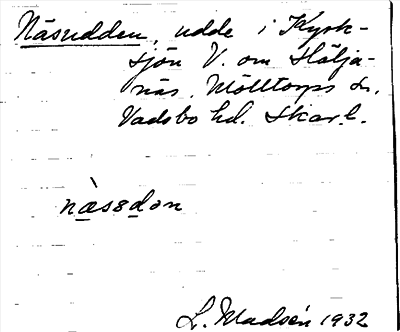 Näsudden, udde i Kyrk-
sjön V. om Hölja-
näs. Mölltorps sn.
Vadsbo hd. Skar.l.
næ̀sədən
L. Madsén 1932